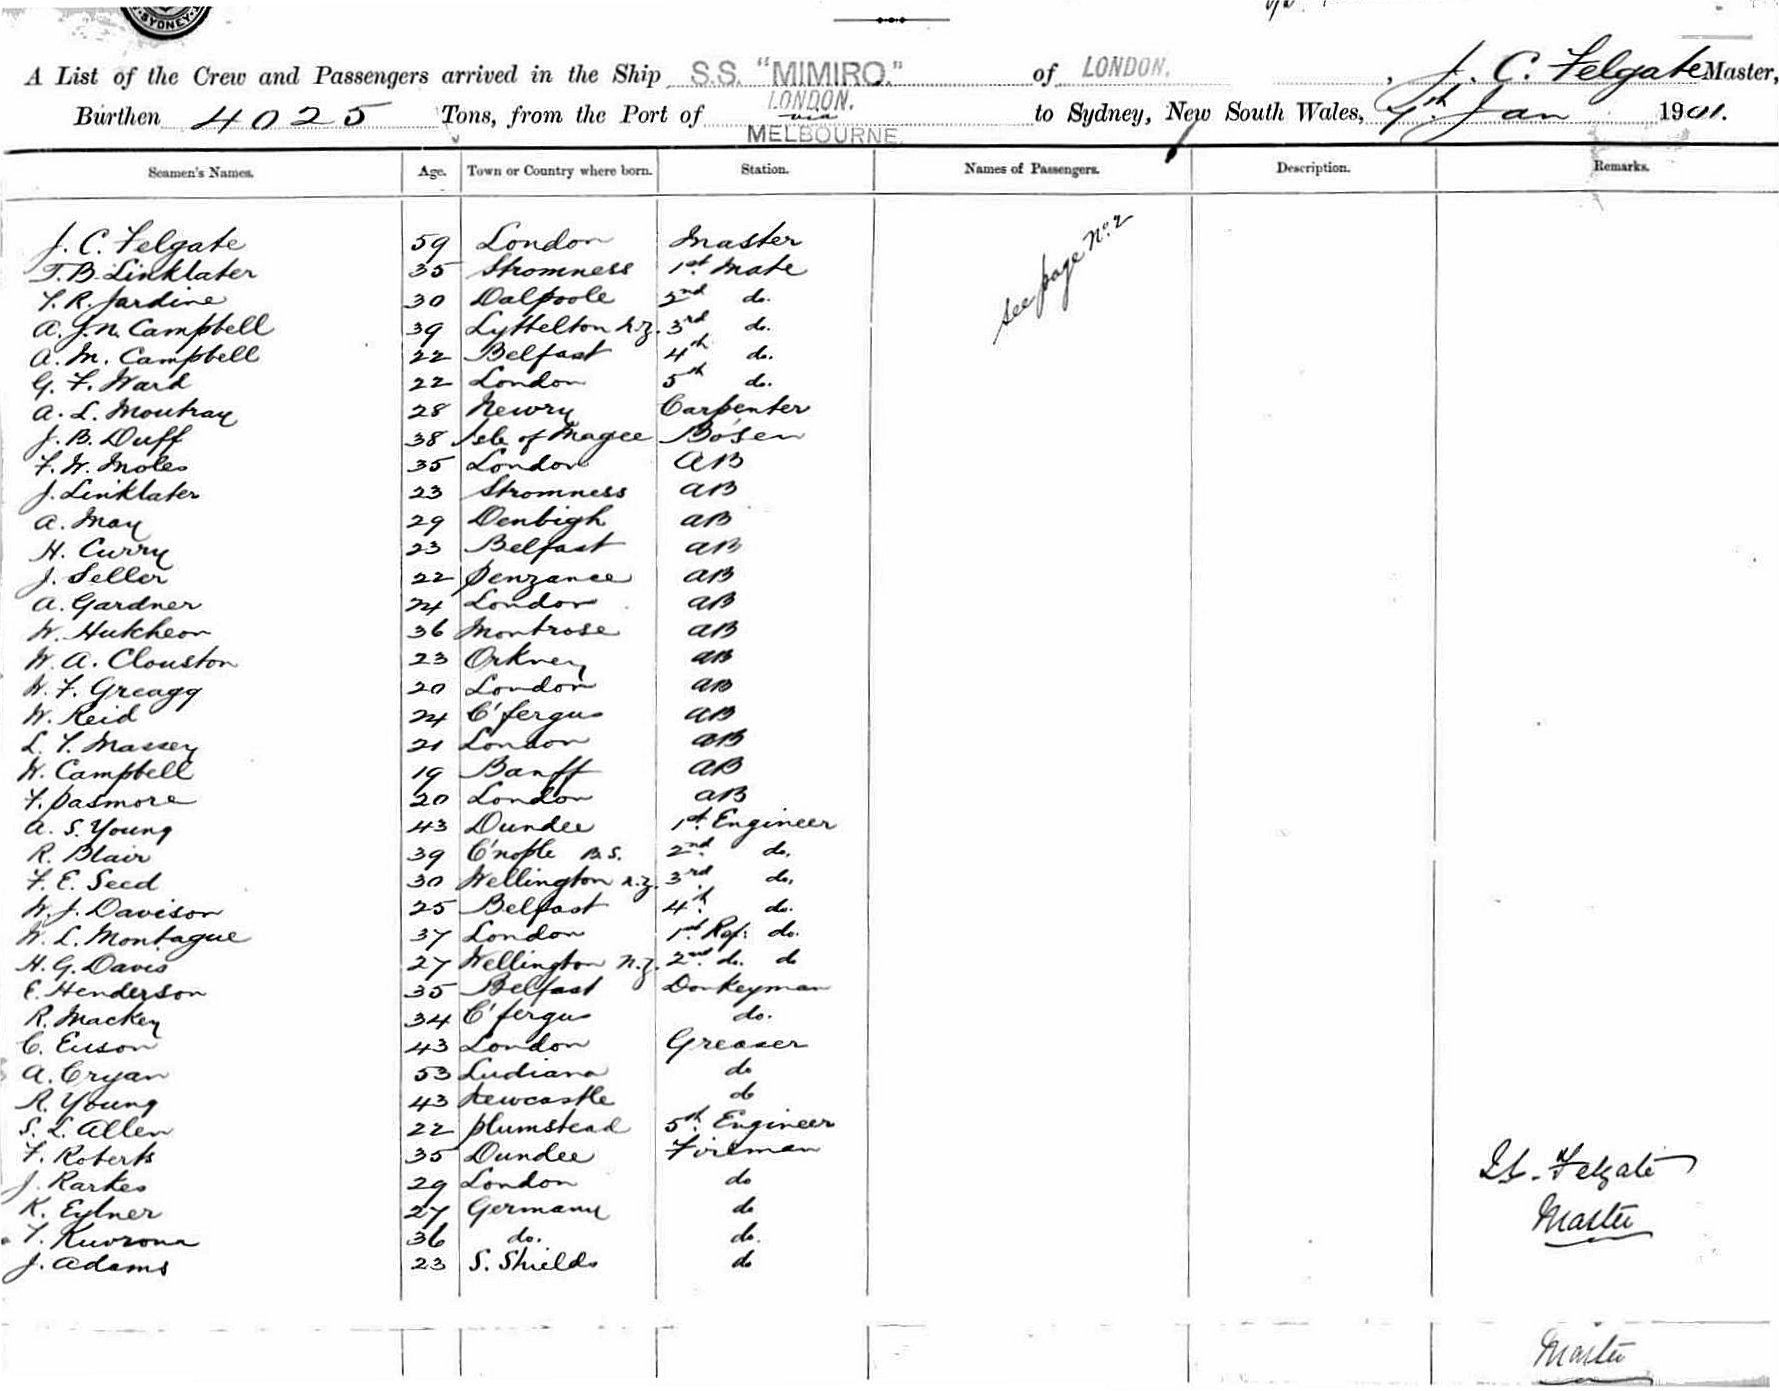 SYDNEY
A List of the Crew and Passengers arrived in the Ship S.S. "MIMIRO." of LONDON, J. C. Felgate Master,
Burthen 4025 Tons, from the Port of LONDON. via MELBOURNE. to Sydney, New South Wales, 7th Jan 1901.
Seamen's Names. Age. Town or Country where born. Station. Names of Passengers. Description. Remarks.
See page No. 2
J. C. Felgate 59 London Master
T. B. Linklater 35 Stromness 1st Mate
F. R. Jardine 30 Dalpoole 2nd do.
A. J. N. Campbell 39 Lyttelton N.Z. 3rd do.
A. M. Campbell 22 Belfast 4th do.
G. F. Ward 22 London 5th do.
A. L. Moutray 28 Newry Carpenter
J. B. Duff 38 Isle of Magee Bo'sen
F. W. Moles 35 London AB
J. Linklater 23 Stromness AB
A. May 29 Denbigh AB
H. Curry 23 Belfast AB
J. Seller 22 Penzance AB
A. Gardner 24 London AB
W. Hutcheon 36 Montrose AB
W. A. Clouston 23 Orkney AB
W. F. Greagg 20 London AB
W. Reid 24 C'fergus AB
L. F. Massey 21 London AB
W. Campbell 19 Banff AB
F. Pasmore 20 London AB
A. S. Young 43 Dundee 1st Engineer
R. Blair 39 C'nople B.S. 2nd do.
F. E. Seed 30 Wellington N.Z. 3rd do.
W. J. Davison 25 Belfast 4th do.
W. L. Montague 37 London 1st Ref: do.
H. G. Davis 27 Wellington N.Z. 2nd do. do
E. Henderson 35 Belfast Donkeyman
R. Mackey 34 C'fergus do.
C. Euson 43 London Greaser
A. Cryan 53 Ludiana do
R. Young 43 Newcastle do
S. L. Allen 22 Plumstead 5th Engineer
F. Roberts 35 Dundee Fireman
J. Rarkes 29 London do
K. Eylner 27 Germany do
36 do. do.
J. Adams 23 S. Shields do
Felgate
Master
Master